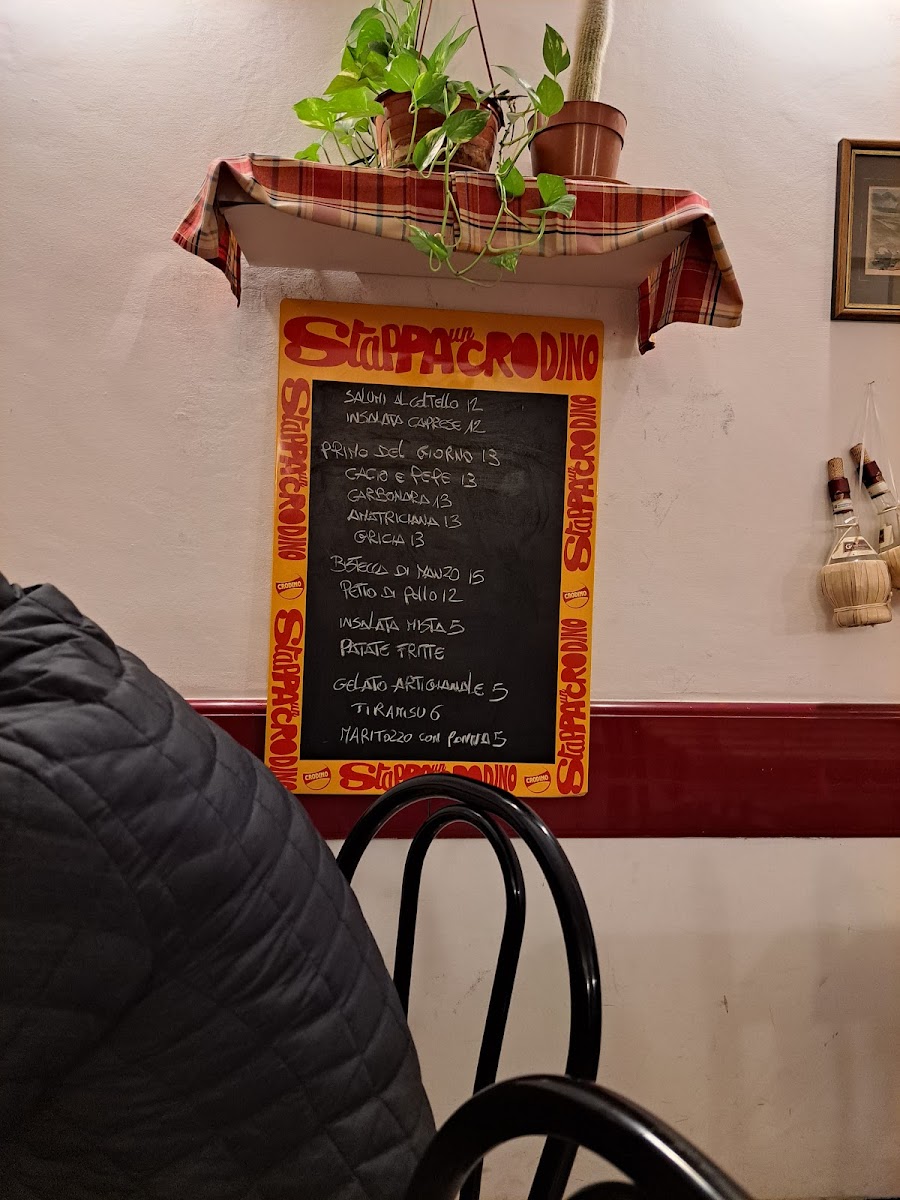 Stappa un CRODINO
SALUMI AL COLTELLO 12
INSALATA CAPRESE 12
PRIMO DEL GIORNO 13
CACIO e PEPE 13
CARBONARA 13
AMATRICIANA 13
GRICIA 13
BISTECCA DI MANZO 15
PETTO DI POLLO 12
INSALATA MISTA 5
PATATE FRITTE
GELATO ARTIGIANALE 5
TIRAMISU 6
MARITOZZO CON PANNA 5
Stappa un CRODINO
CRODINO
Stappa un CRODINO
Stappa un CRODINO
CRODINO
Stappa un CRODINO
CRODINO
Stappa un CRODINO
CRODINO